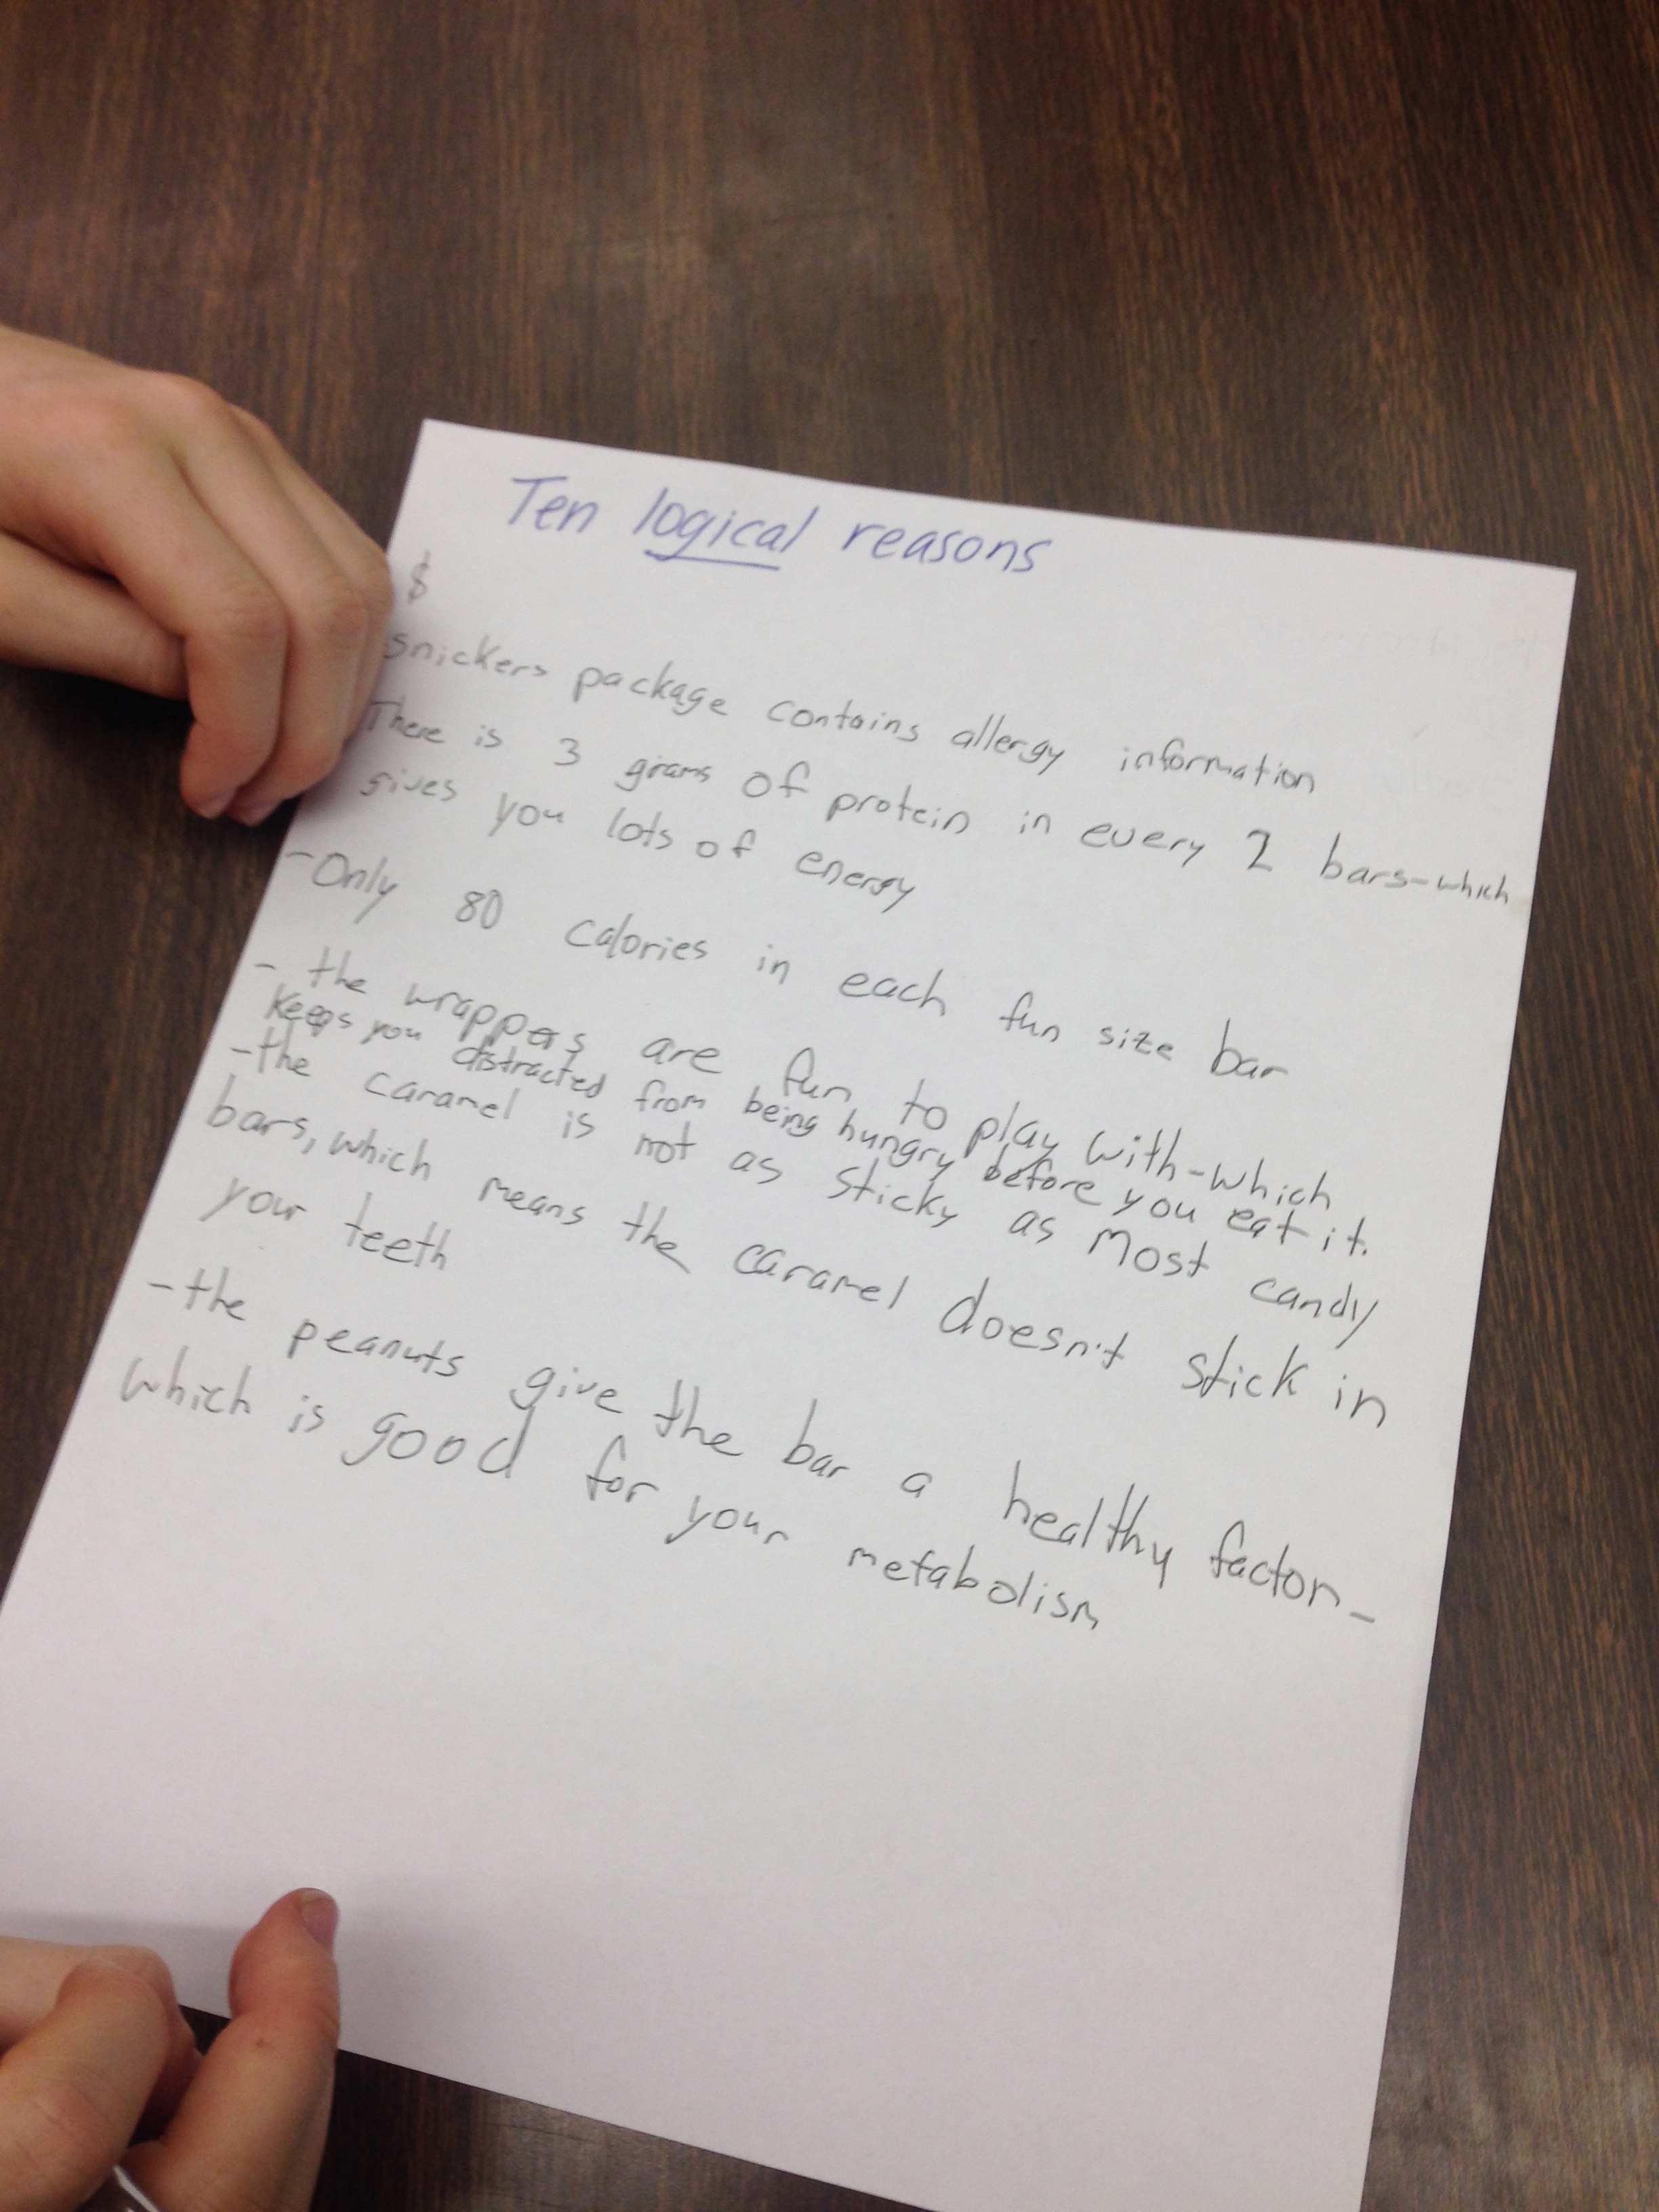 Ten logical reasons
$
snickers package contains allergy information
There is 3 grams of protein in every 2 bars-which
gives you lots of energy
-Only 80 calories in each fun size bar
- the wrappers are fun to play with-which
keeps you distracted from being hungry before you eat it.
-the caramel is not as sticky as most candy
bars, which means the caramel doesn't stick in
your teeth
-the peanuts give the bar a healthy factor-
which is good for your metabolism